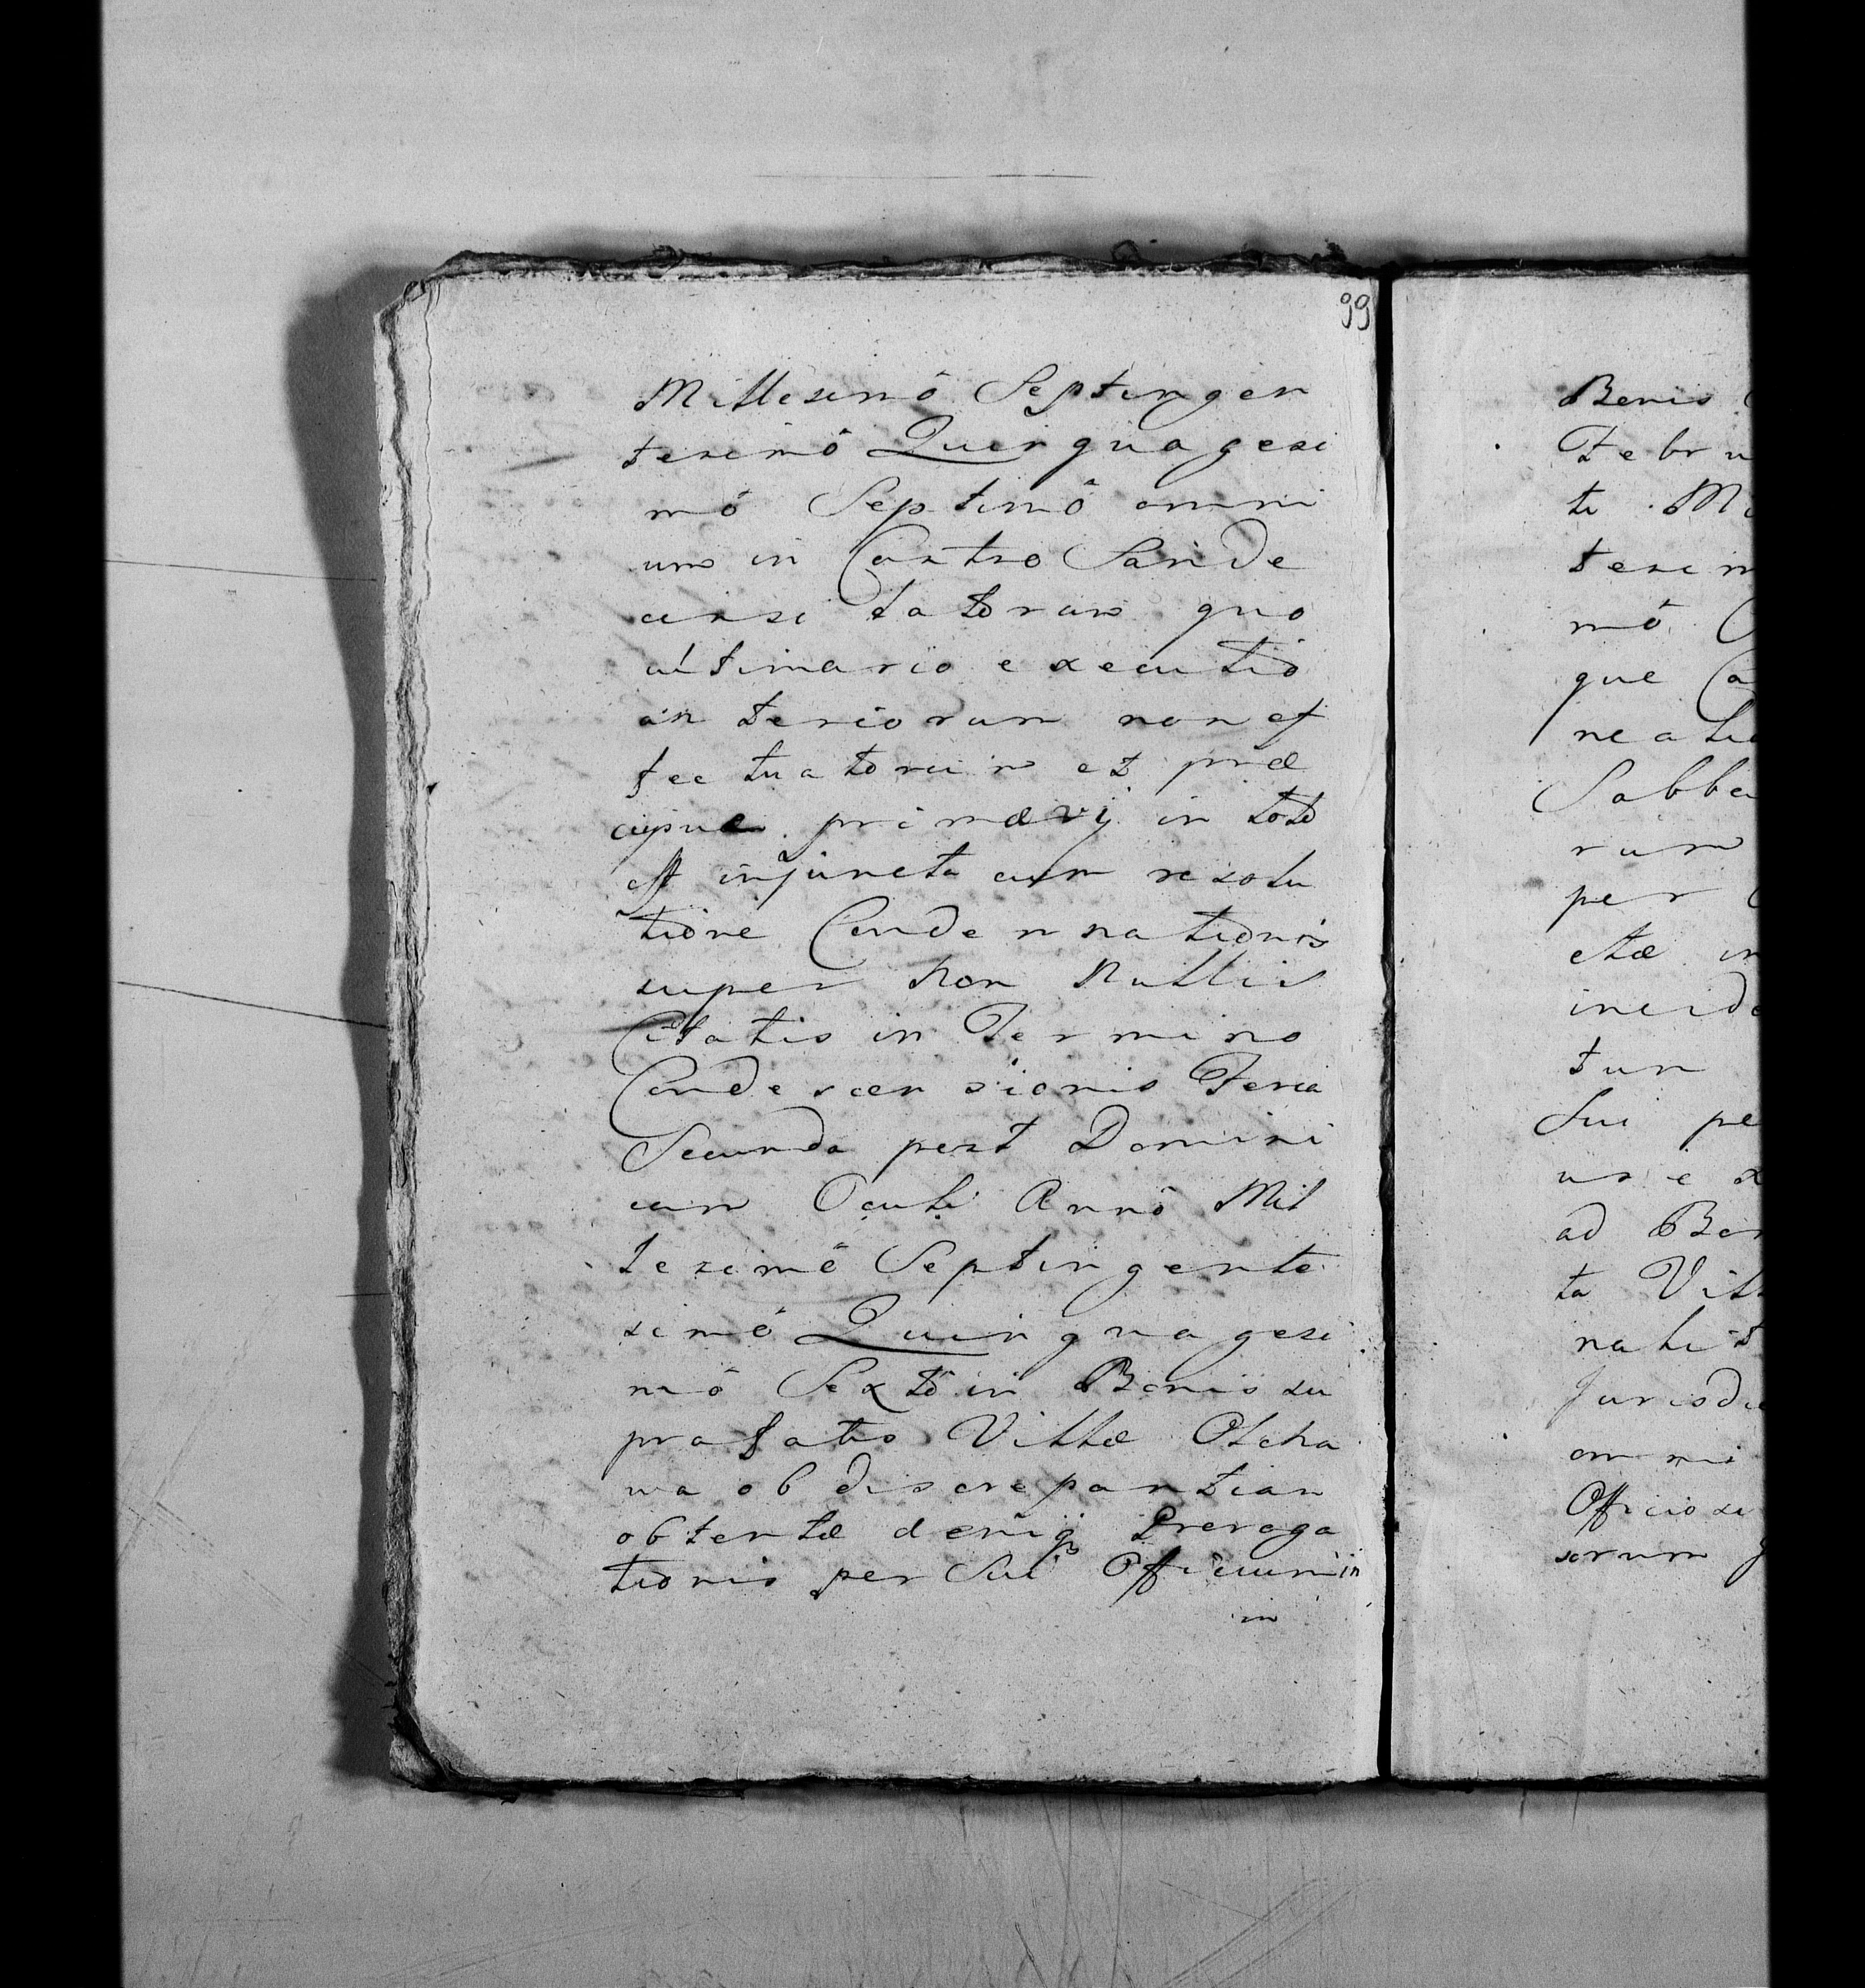 99
Millesimô Septingen
tesimô Quinquagesi
mô Septimô omni
um in Castro Sande
censi latorum quo
ultimario executio
an teriorum non ef
fec tuatorum et præ
cipue primævj in toto
est injuncta cum resolu
tione Condemnationis
super non Nullis
Citatis in Termino
Condescensionis Feria
Secunda post Domini
cam Oculi Annô Mil
lesimô Septingente
simô Quinquagesi
mô Sextô in Bonis su
prafatis Villæ Olcha
wa ob discrepantiam
obtentæ deniq Proroga
tionis per Sui Officium in
in
Bonis
Febru
ti Mi
tesim
mô
que Ca
neatio
Sabba
rum
per
ctæ in
incide
tur
Sui pe
us e x
ad Bon
ta Vill
nalit
Jurisdic
omni
Officiosi
sorum